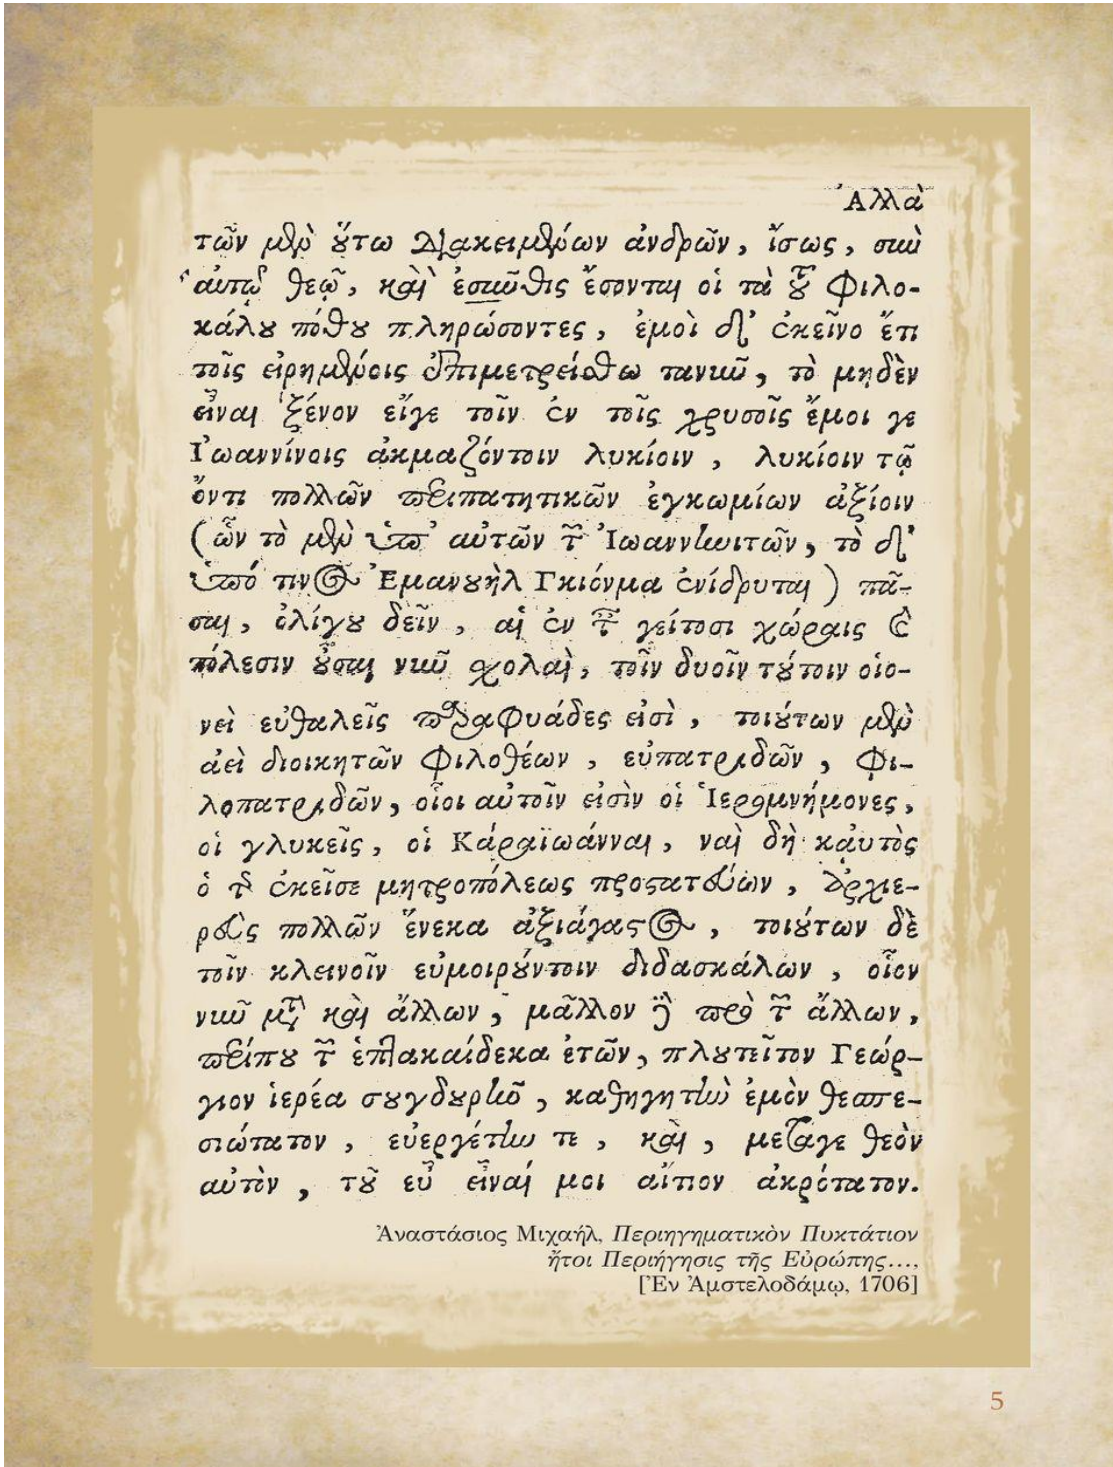 Ἀλλὰ
τῶν μὲν ὕτω διακειμένων ἀνδρῶν, ἴσως, σὺν
αὐτῷ θεῷ, καὶ ἐσαῦθις ἔσονται οἱ τὰ τοῦ Φιλο-
κάλȣ πόθȣ πληρώσοντες, ἐμοὶ δ' ἐκεῖνο ἔτι
τοῖς εἰρημένοις ἐπιμετρείσθω τανῦν, τὸ μηδὲν
εἶναι ξένον εἴγε τοῖν ἐν τοῖς χρυσοῖς ἔμοι γε
Ἰωαννίνοις ἀκμαζόντοιν λυκίοιν, λυκίοιν τῷ
ὄντι πολλῶν περιπατητικῶν ἐγκωμίων ἀξίοιν
(ὧν τὸ μὲν ὑπ' αὐτῶν τῶν Ἰωαννινιτῶν, τὸ δ'
ὑπό τινος Ἐμανȣὴλ Γκιόνμα ἐνίδρυται) πᾶ-
σαι, ὀλίγȣ δεῖν, αἱ ἐν τοῖς γείτοσι χώραις καὶ
πόλεσιν ȣ̓͂σαι νῦν σχολαὶ, τοῖν δυοῖν τȣ́τοιν οἱο-
νεὶ εὐθαλεῖς παραφυάδες εἰσὶ, τοιȣ́των μὲν
ἀεὶ διοικητῶν Φιλοθέων, εὐπατριδῶν, Φι-
λοπατριδῶν, οἷοι αὐτοῖν εἰσὶν οἱ Ἱερομνήμονες,
οἱ γλυκεῖς, οἱ Κάραϊωάνναι, ναὶ δὴ καὐτὸς
ὁ τῆς ἐκεῖσε μητροπόλεως προστατεύων, ἀρχιε-
ρεὺς πολλῶν ἕνεκα ἀξιάγαστος, τοιȣ́των δὲ
τοῖν κλεινοῖν εὐμοιρȣ́ντοιν διδασκάλων, οἷον
νῦν μετὰ καὶ ἄλλων, μᾶλλον ἢ πρὸ τῶν ἄλλων,
περίπȣ τῶν ἑπτακαίδεκα ἐτῶν, πλȣτεῖτον Γεώρ-
γιον ἱερέα σȣγδȣρῆ, καθηγητὴν ἐμὸν θεσπε-
σιώτατον, εὐεργέτην τε, καὶ, μετάγε θεὸν
αὐτὸν, τȣ͂ εὖ εἶναί μοι αἴτιον ἀκρότατον.
Ἀναστάσιος Μιχαήλ, Περιηγηματικὸν Πυκτάτιον
ἤτοι Περιήγησις τῆς Εὐρώπης...,
[Ἐν Ἀμστελοδάμῳ, 1706]
5